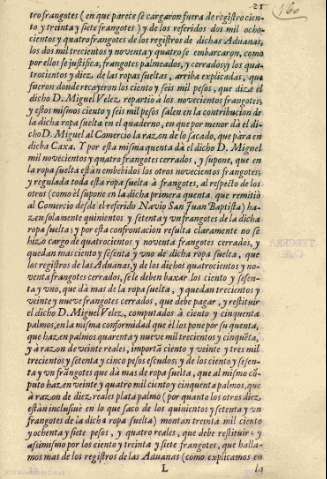 21
160
tro frangotes (en que parece se cargaron fuera de registro cien-
to y treinta y siete frangotes) y de los referidos dos mil ocho-
cientos y quatro frangotes de los registros de dichas Aduanas,
los dos mil trecientos y noventa y quatro se embarcaron, como
por ellos se justifica, frangotes palmeados, y cerrados; y los qua-
trocientos y diez, de las ropas sueltas, arriba explicadas, que
fueron donde recayeron los ciento y seis mil pesos, que dize el
dicho D. Miguel Velez, repartio à los novecientos frangotes,
y estos mismos ciento y seis mil pesos salen en la contribucion de
la dicha ropa suelta en el quaderno, en que por menor dà el di-
cho D. Miguel al Comercio la razon de lo sacado, que para en
dicha Caxa. Y por esta misma quenta dà el dicho D. Miguel
mil novecientos y quatro frangotes cerrados, y supone, que en
la ropa suelta estàn embebidos los otros novecientos frangotes;
y regulada toda esta ropa suelta à frangotes, al respecto de los
otros (como èl supone en la dicha primera quenta, que remitiò
al Comercio desde el referido Navio San Juan Baptista) ha-
zen solamente quinientos y setenta y vn frangotes de la dicha
ropa suelta; y por esta confrontacion resulta claramente no se
hizo cargo de quatrocientos y noventa frangotes cerrados, y
quedan mas ciento y sesenta y vno de dicha ropa suelta, que
los registros de las Aduanas, y de los dichos quatrocientos y no-
venta frangotes cerrados, se le deben baxar los ciento y sesen-
ta y vno, que dà mas de la ropa suelta, y quedan trecientos y
veinte y nueve frangotes cerrados, que debe pagar, y restituir
el dicho D. Miguel Velez, computados à ciento y cinquenta
palmos, en la misma conformidad que èl les pone por su quenta,
que hazen palmos quarenta y nueve mil trecientos y cinquèta,
y à razon de veinte reales, importã ciento y veinte y tres mil
trecientos y setenta y cinco pesos escudos; y de los ciento y sesen-
ta y vn frãngotes que dà mas de ropa suelta, que al mismo cõ-
puto hazen veinte y quatro mil ciento y cinquenta palmos, que
à razon de diez reales plata palmo (por quanto los otros diez,
estàn inclusive en lo que sacò de los quinientos y setenta y vn
frangotes de la dicha ropa suelta) montan treinta mil ciento
y ochenta y siete pesos, y quatro reales, que debe restituir: y
asimismo por los ciento y treinta y siete frangotes, que halla-
mos mas de los registros de las Aduanas (como explicamos en
L
la